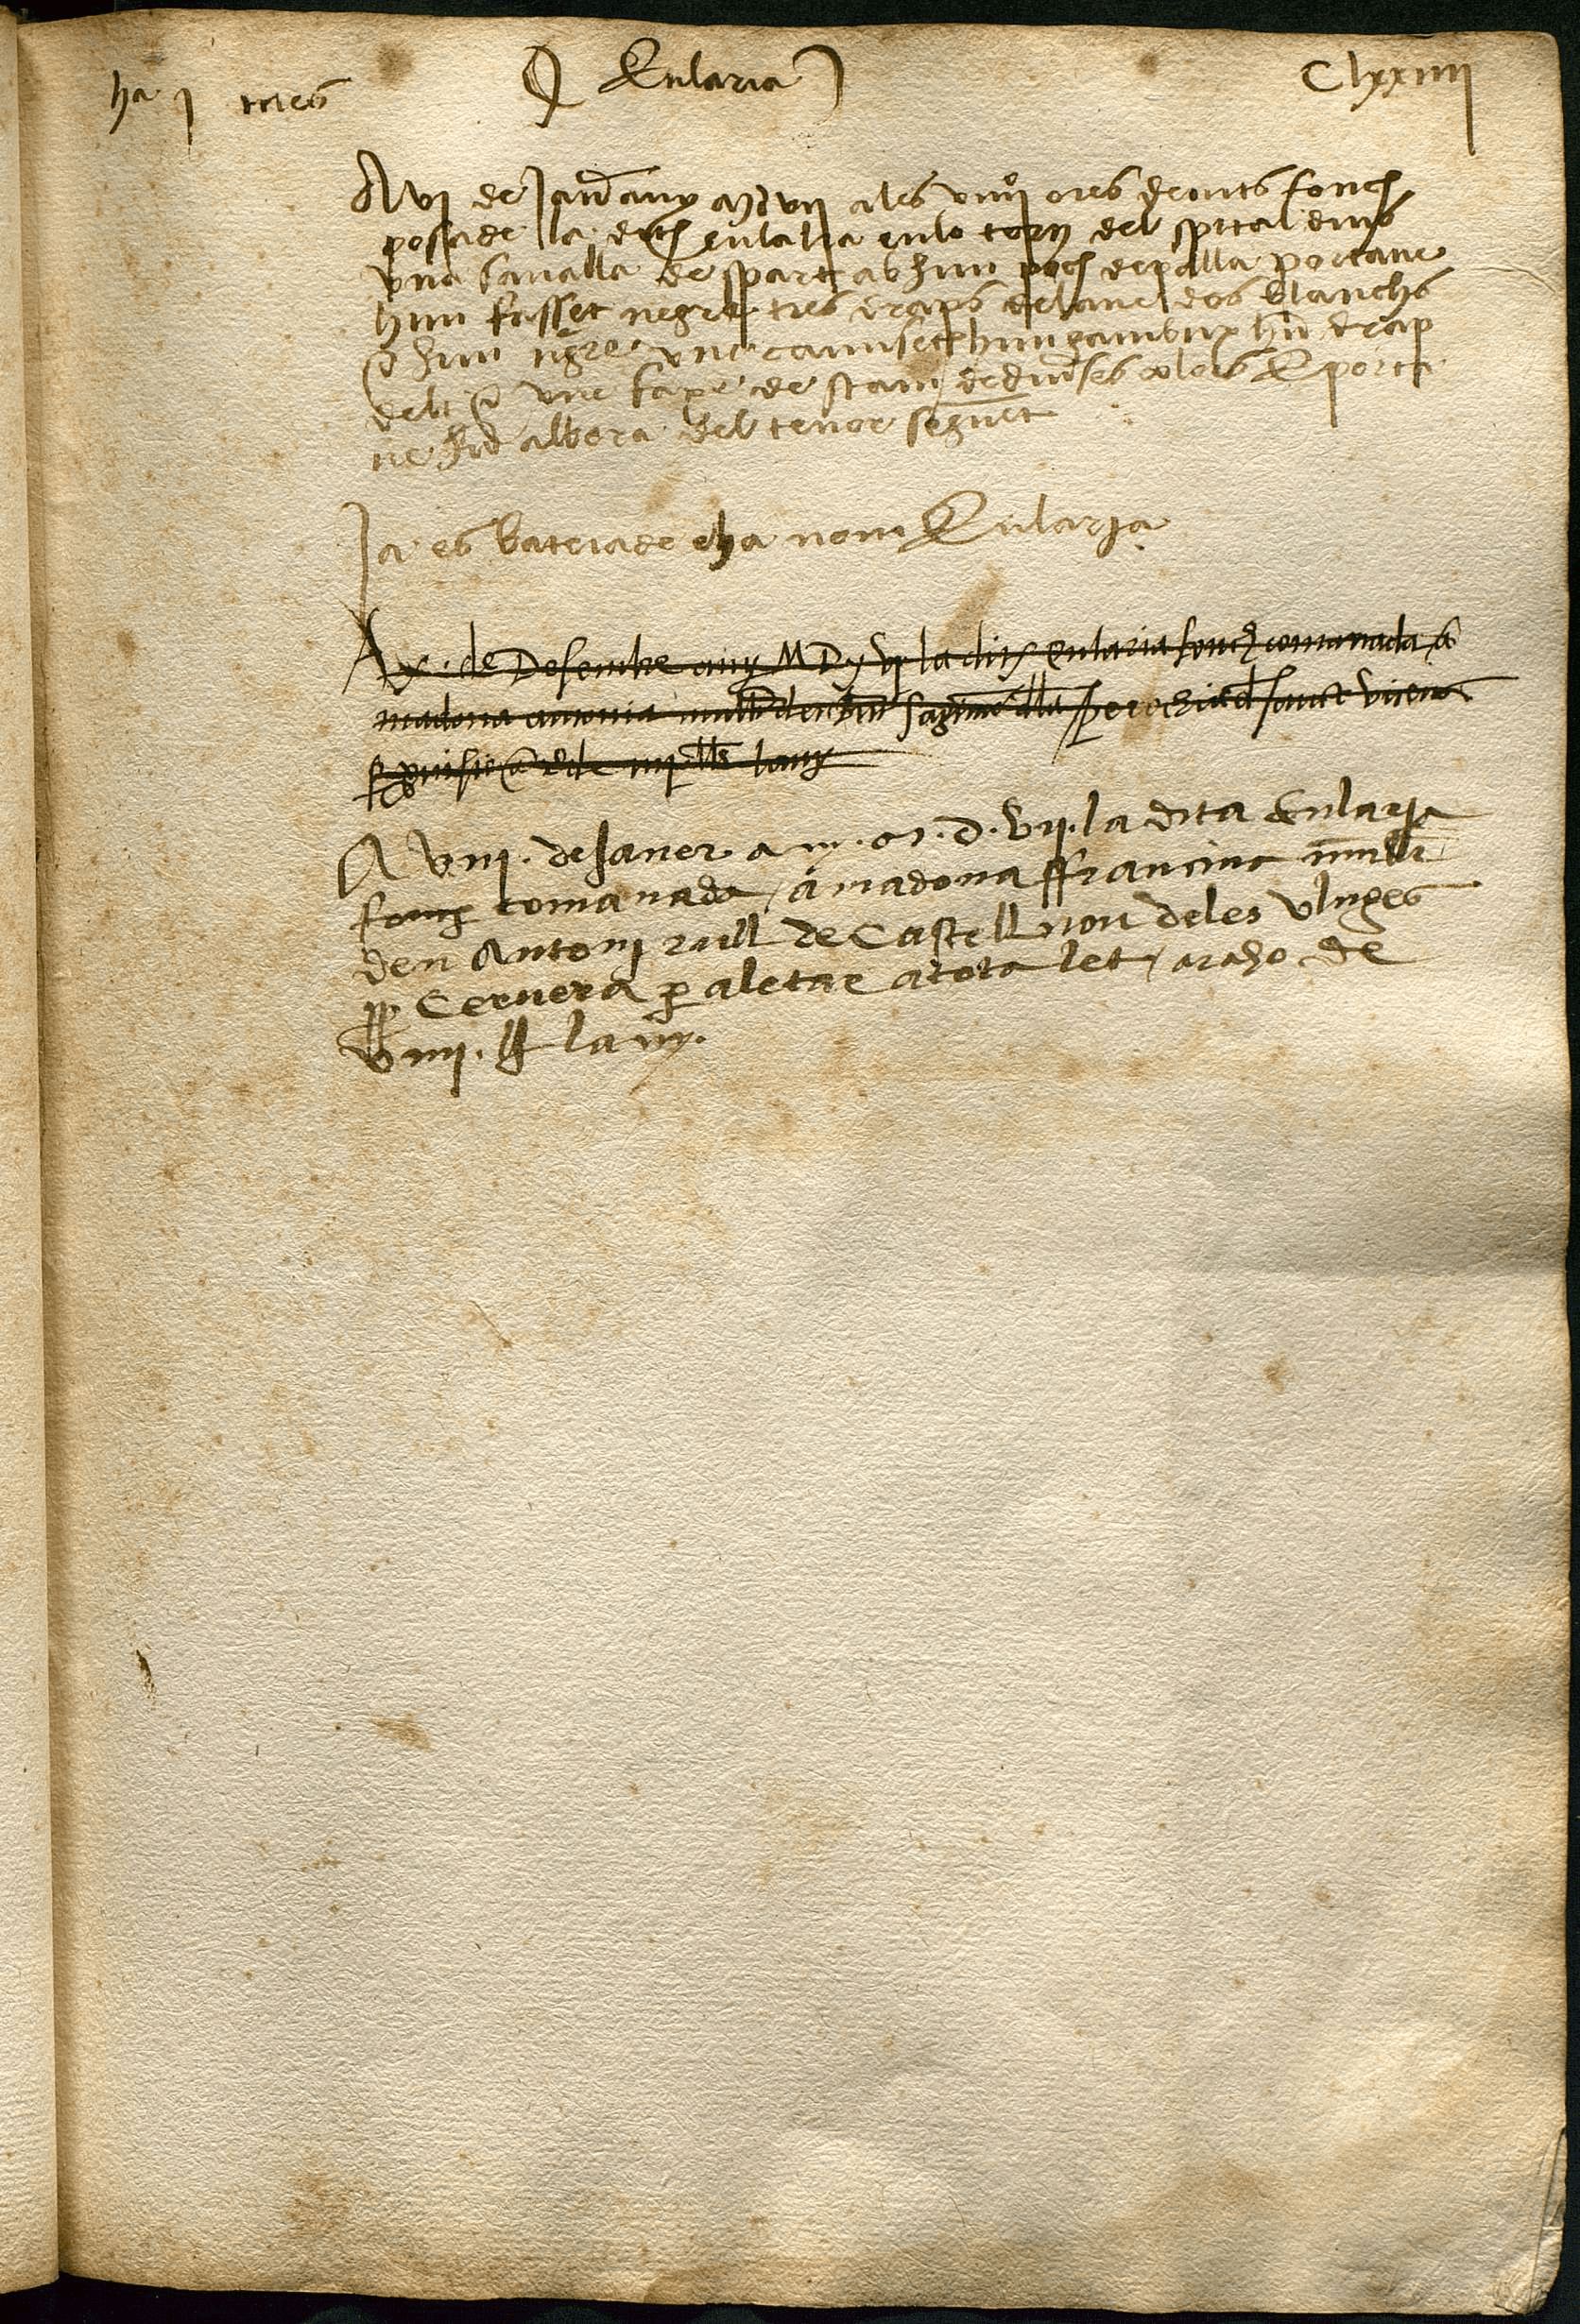 ha j mes
Eularia
Clxxiiij
A vj de Janer any mdvij a les viiij ores de nits fonch
posade la dita eulalia en lo torn del spital dins
vna banalla de spart ab hun poch de palla portaue
hun fasset negre tres draps de lane dos blanchs
e hun negre vne camiseta hun gambux hun drap
de li e vne faxe de stam de diuerses colors E porta
ue hun albera del tenor seguent
Ja es bateiade e ha nom Eularja
A x. de Desembre any MD la dita Eularia fonch comanada a
madona antonia muller den sanct vicens
lany
A viij. de Janer any. m. d. vij. la dita Eularja
fonch comanada / a madona ffrancina muller
den Antonj rull de Castell nou deles vluges
pp Cervera per aletar a tota let / a raho de
viiij. ll lany.